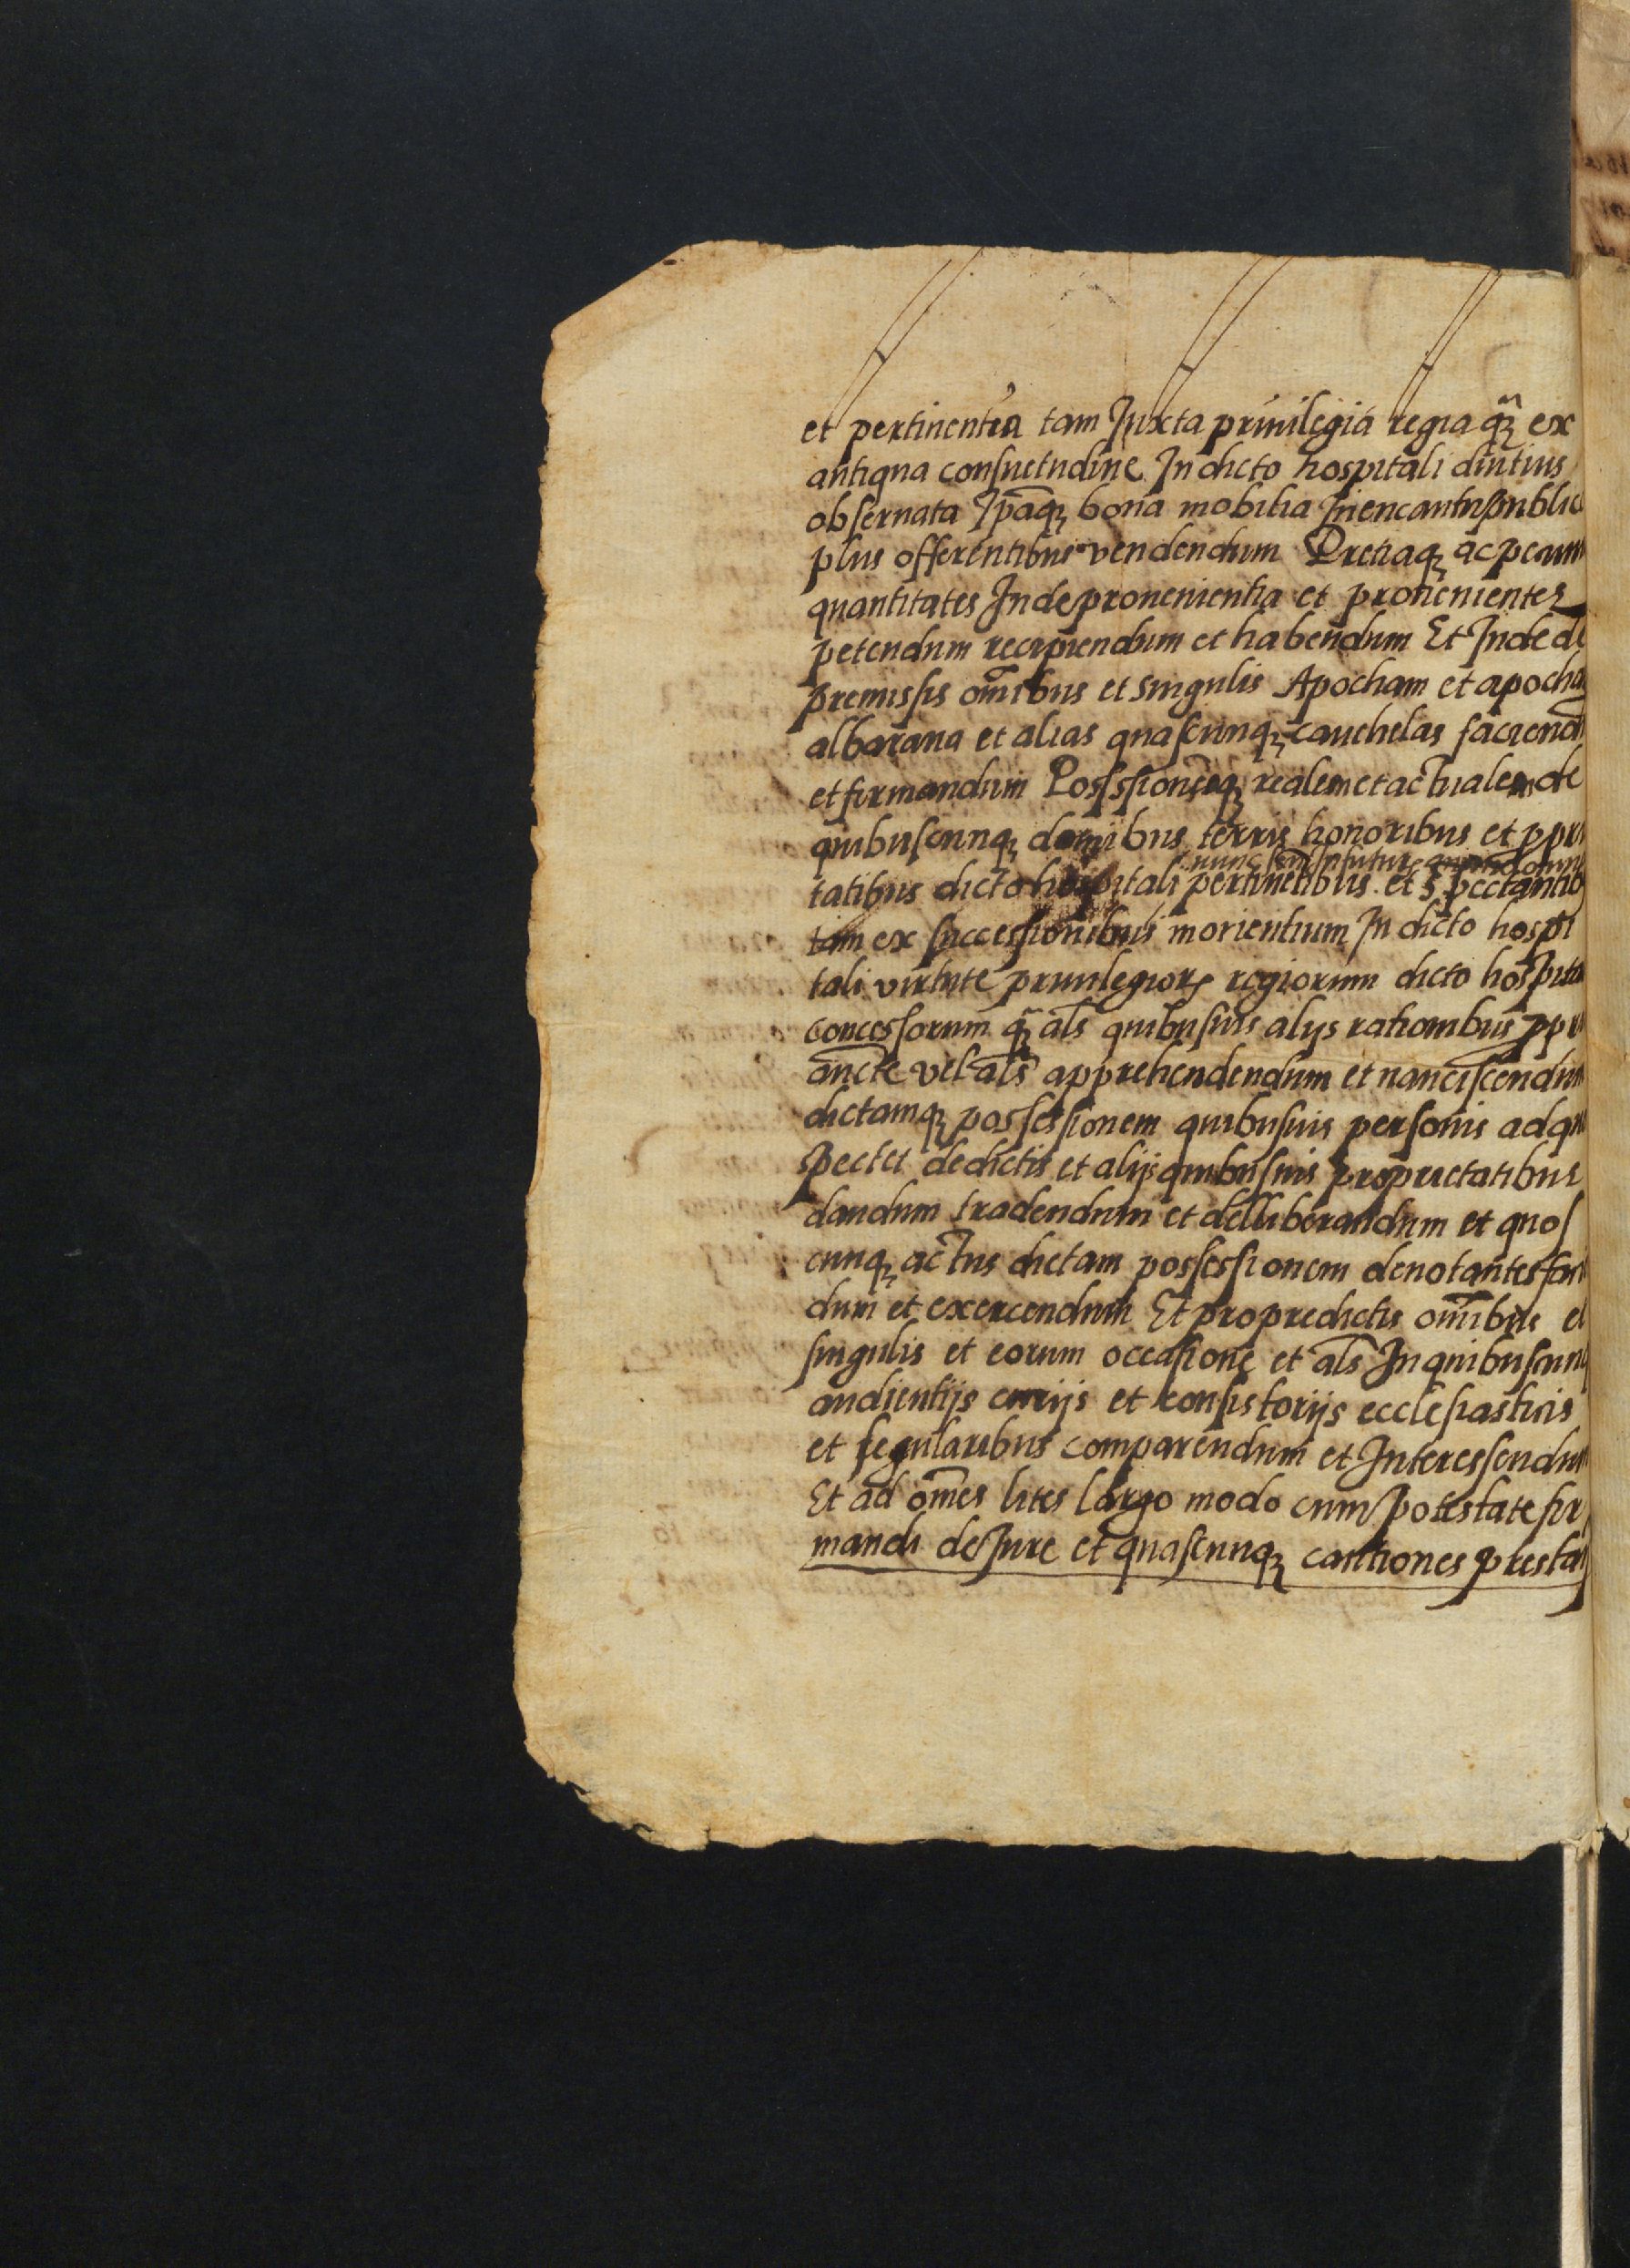 et pertinentia tam Juxta priuilegia regia q̃ꝫ ex
antiqua consuetudine In dicto hospitali diutius
obseruata Ip̃aqꝫ bona mobilia In encantu public
plus offerentibus vendendum Pretiaqꝫ ac pecun
quantitates Inde prouenientia et prouenientes
petendum recipiendum et habendum Et Inde de
premissis om̃ibus et singulis Apocham et apochas
albarana et alias quascunqꝫ cauthelas faciend
et firmandum Possessionẽqꝫ realem et actualem de
quibuscunqꝫ domibus terris honoribus et ppri
nunc seu In futur
tatibus dicto hospitali pertinẽtibus et spectantib
tam ex successionibus morientium In dicto hospi
tali virtute priuilegioꝝ regiorum dicto hospita
concessorum q̃ꝫ als quibusuis alijs rationibus ppri
aucte vel als apprehendendum et nanciscendum
dictamqꝫ possessionem quibusuis personis ad qu
spectet de dictis et alijs quibusuis proprietatibus
dandum tradendum et delliberandum et quos
cunqꝫ actus dictam possessionem denotantes faci
dum et exercendum Et pro predictis om̃ibus et
singulis et eorum occasione et als In quibuscunq
audientijs curijs et consistorijs ecclesiasticis
et segularibus comparendum et Interessendum
Et ad om̃es lites largo modo cum potestate fir
mandi de Jure et quascunqꝫ cautiones prestan